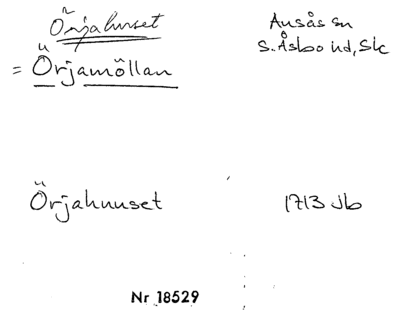 Örjahuset
Ausås sn
S. Åsbo hd, Sk
= Örjamöllan
Örjahuuset
1713 Jb
Nr 18529